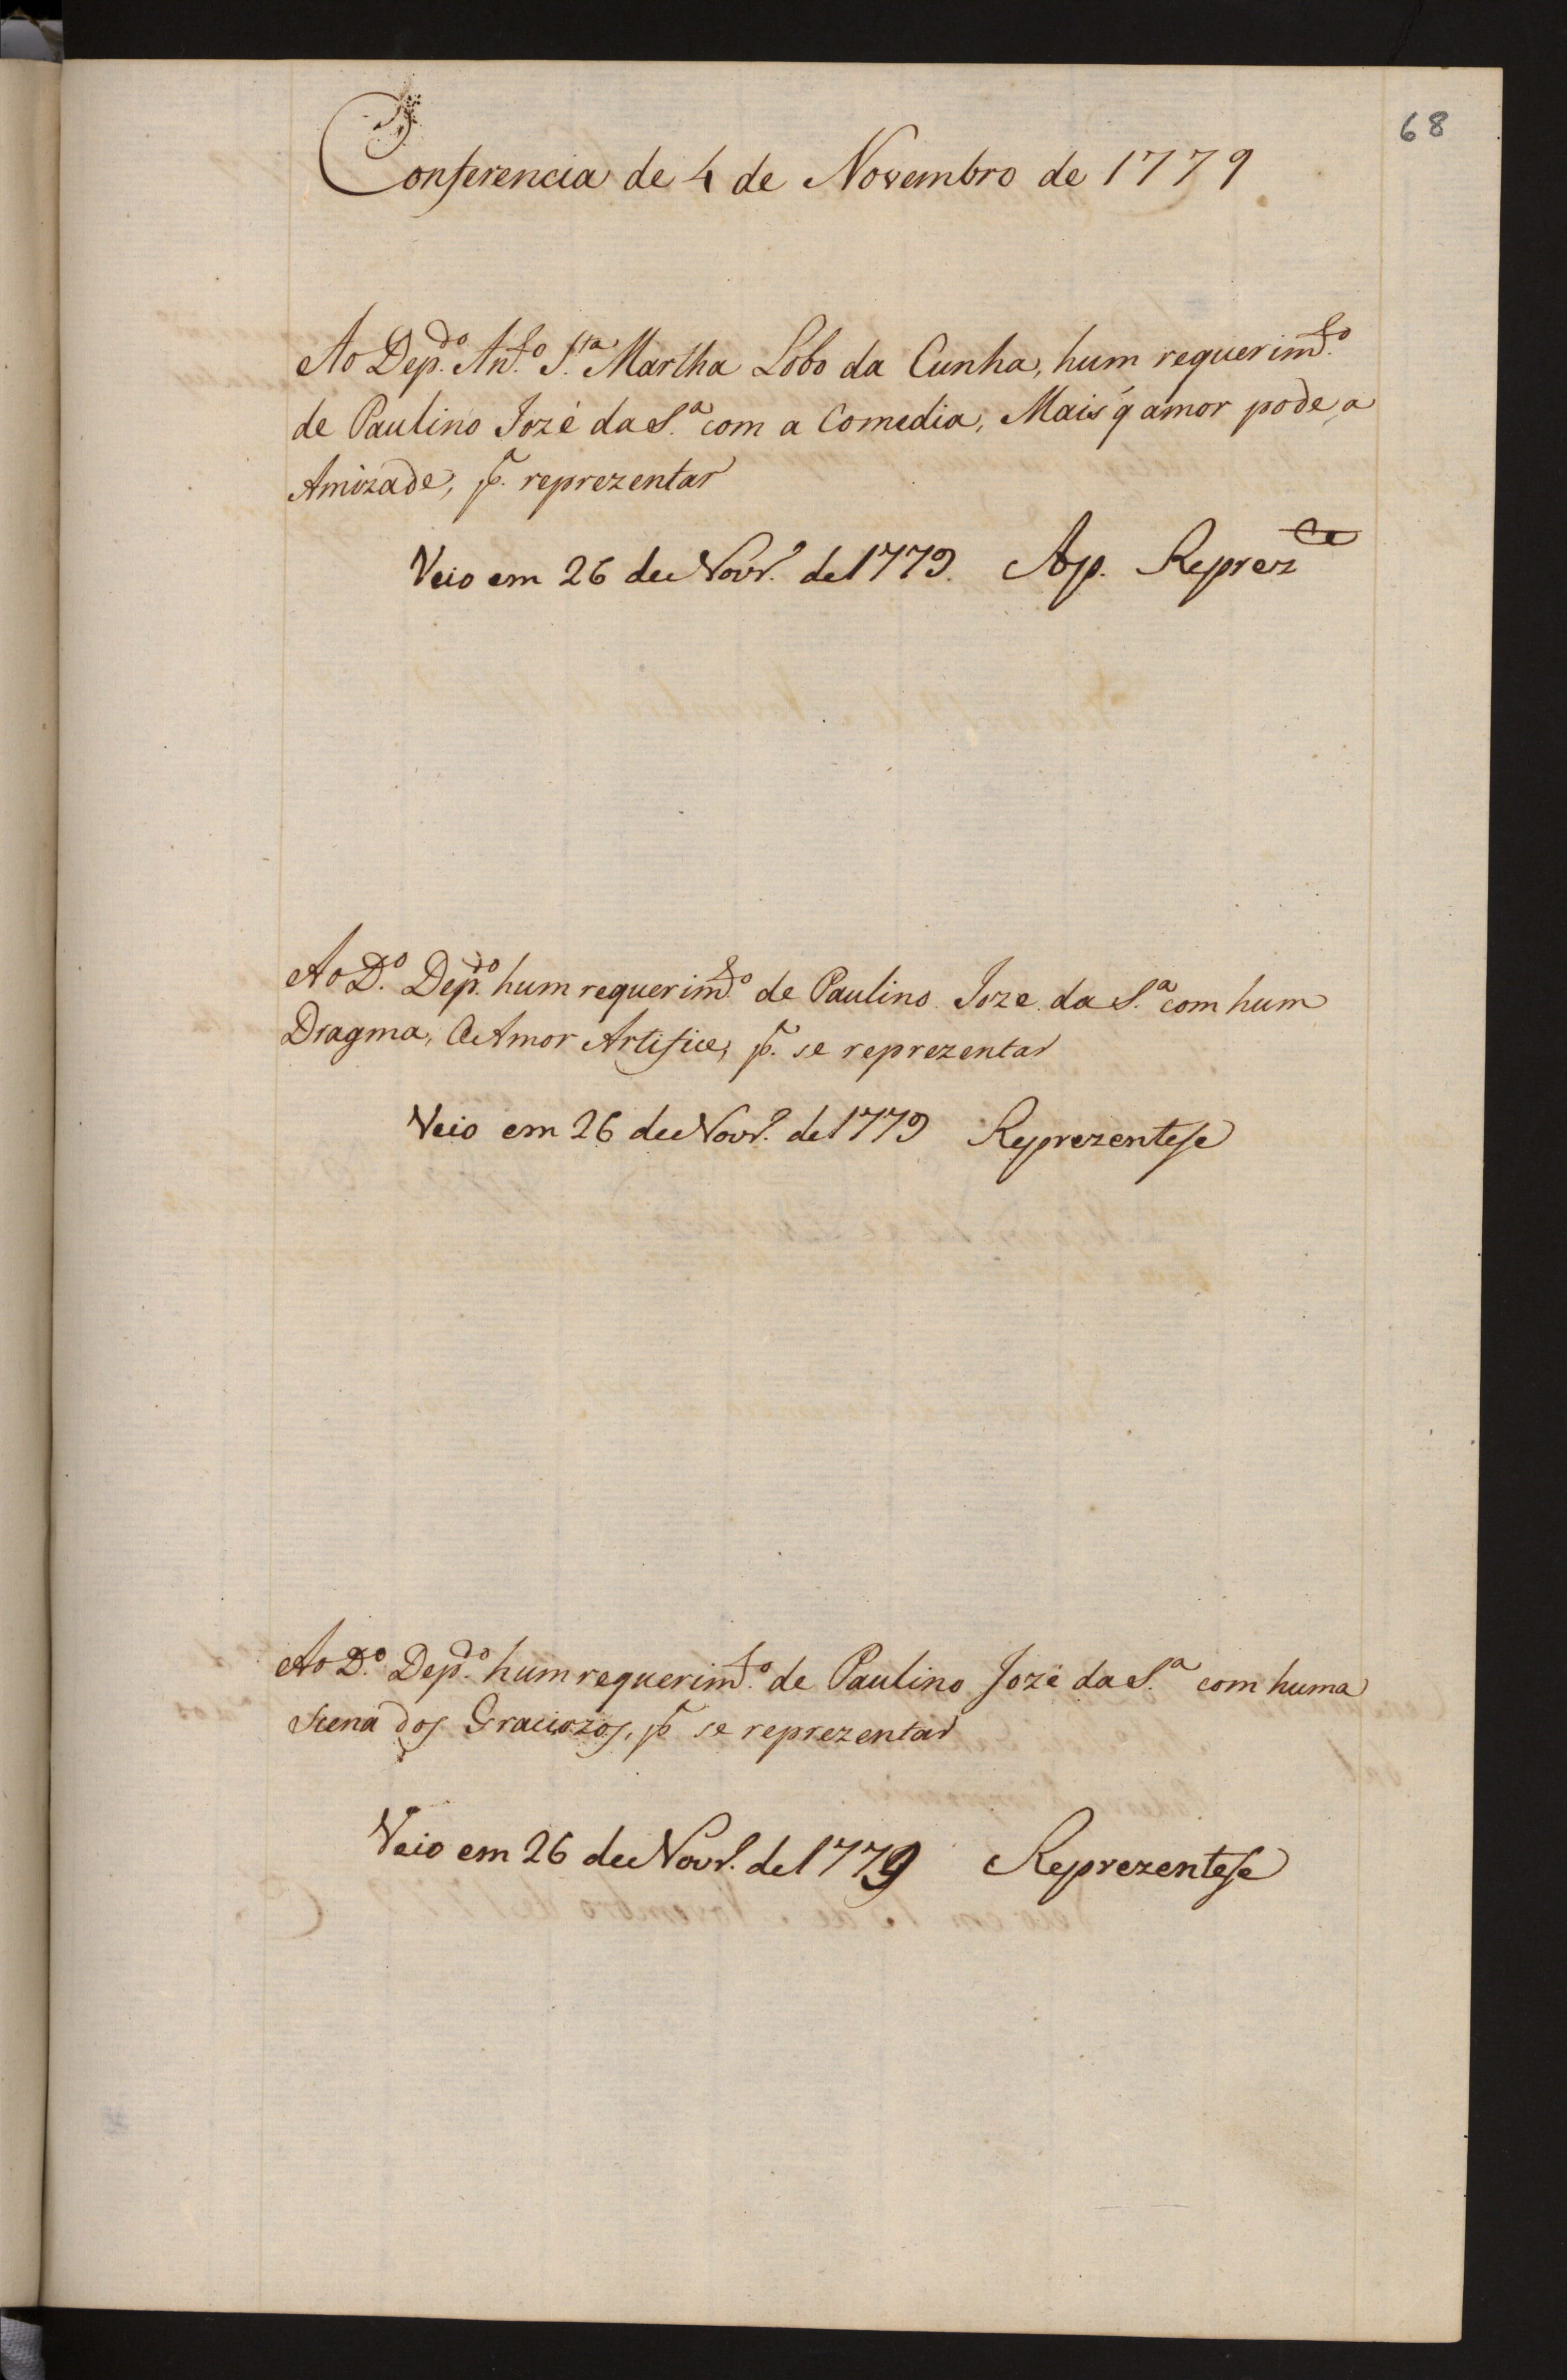 68
Conferencia de 4 de Novembro de 1779
Ao Dep.do An.to S.ta Martha Lobo da Cunha, hum requerim.to
de Paulino Jozé da S.a com a Comedia, Mais q̃ amor pode, a
Amizade, p.a reprezentar
Veio em 26 de Novr.o de 1779. Ap. Reprez.ce
Ao D.o Dep.do hum requerim.to de Paulino Joze da S.a com hum
Dragma, O Amor Artifice, p.a se reprezentar
Veio em 26 de Novr.o de 1779 Reprezentese
Ao D.o Dep.do hum requerim.to de Paulino Jozé da S.a com huma
Scena dos Graciozos, p.a se reprezentar
Veio em 26 de Novr.o de 1779 Reprezentese